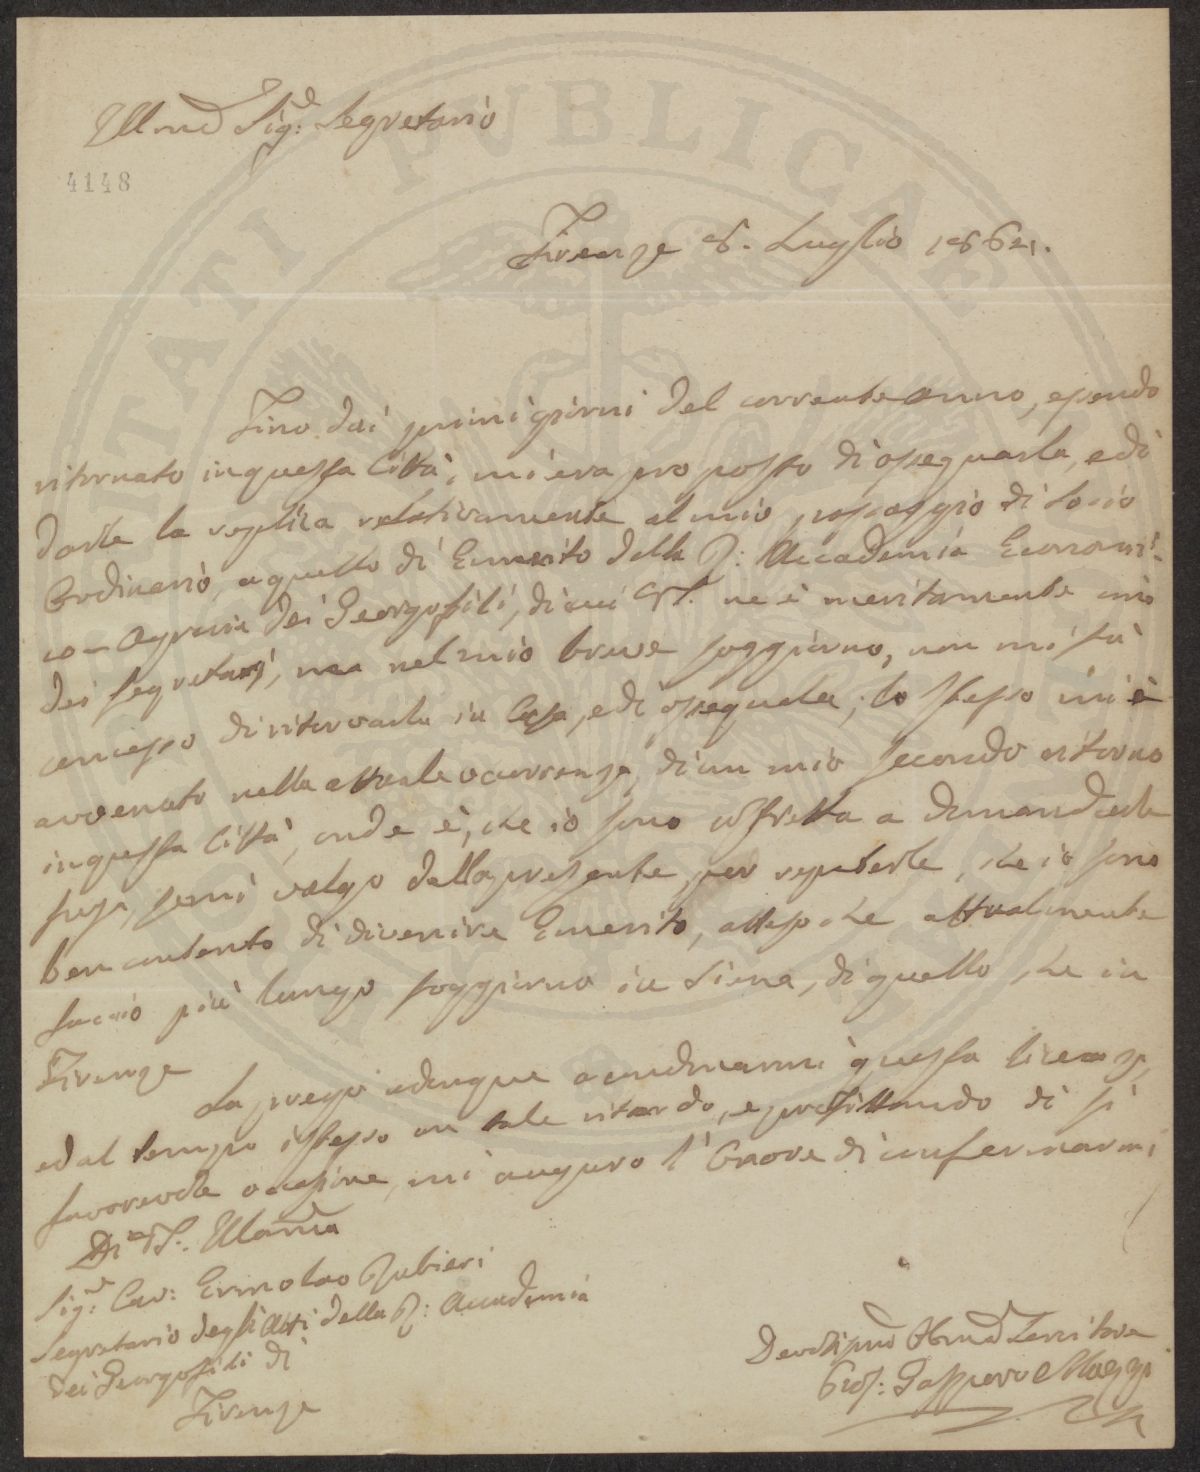 Ill.mo Sig.e Segretario
4148
Firenze 8. Luglio 1862.
Fino dai primi giorni del corrente anno, essendo
ritornato in questa Città, mi era proposto di ossequiarla, e di
darle la replica relativamente al mio passaggio di Socio
Ordinario, a quello di Emerito della R: Accademia Economi-
co-Agraria dei Georgofili, di cui V.S. ne è meritamente uno
dei Segretarj, ma nel mio breve soggiorno, non mi fù
concesso di ritrovarla in Casa, e di ossequiarla; lo stesso mi è
avvenuto nella attuale occorrenza, di un mio secondo ritorno
in questa Città, onde è, che io sono costretto a dimandarle
scusa, se mi valgo della presente, per ripeterle, che io sono
ben contento di divenire Emerito, atteso che attualmente
faccio più lungo soggiorno in Siena, di quello che in
Firenze
La prego adunque a condonarmi questa licenza,
ed al tempo istesso un tale ritardo, e profittando di sì
favorevole occasione, mi auguro l'Onore di confermarmi
Di V.S. Ill.ma
Sig.e Cav: Ermolao Rubieri
Segretario degli Atti della R: Accademia
dei Georgofili di
Firenze
Devotissmo Obmo Servitore
Prof: Gaspero Mazzi